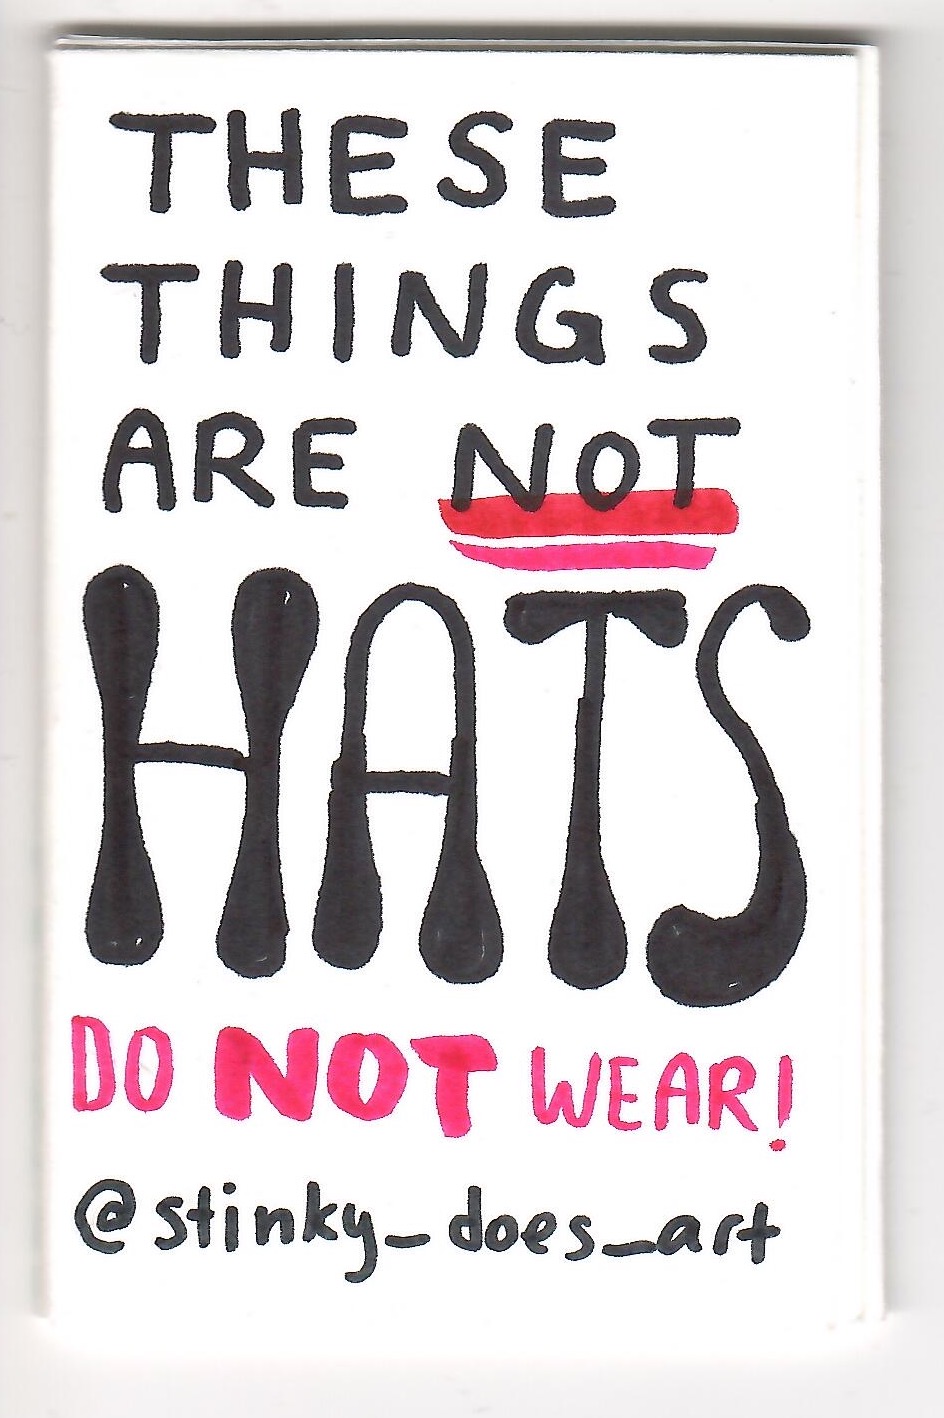 THESE
THINGS
ARE NOT
HATS
DO NOT WEAR!
@stinky_does_art